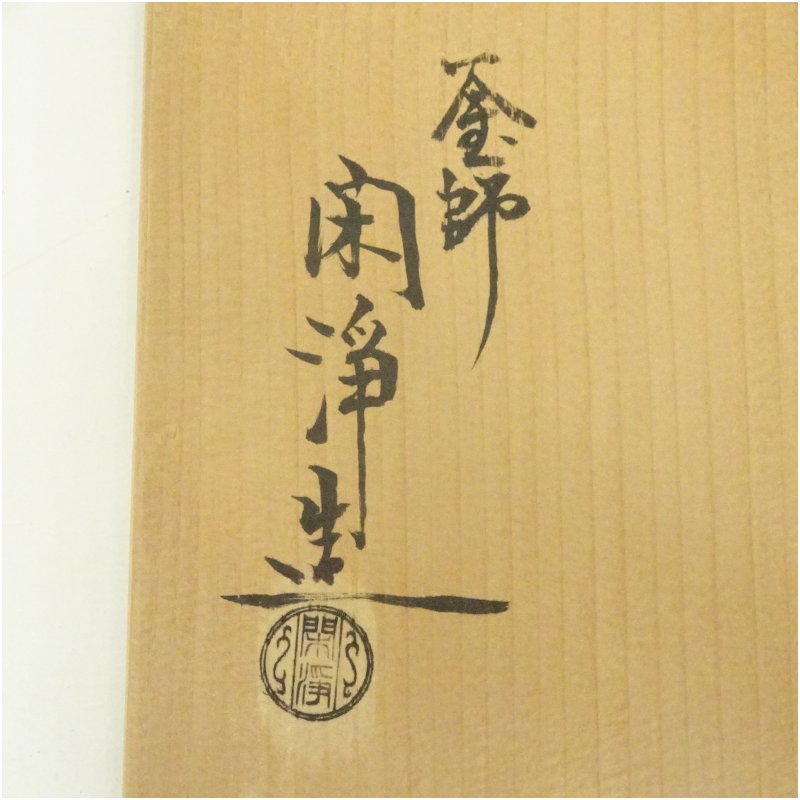 釜師
閑浄造
閑浄